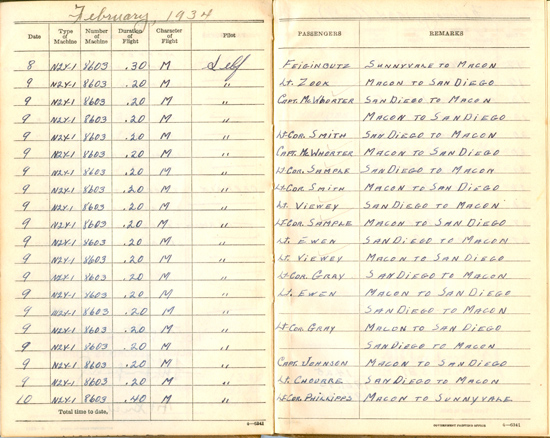 February, 1934
Date Type of Machine Number of Machine Duration of Flight Character of Flight Pilot PASSENGERS REMARKS
8 N2Y-1 8603 .30 M Self FEIGINBUTZ SUNNYVALE TO MACON
9 N2Y-1 8603 .20 M " Lt. ZOOK MACON TO SAN DIEGO
9 N2Y-1 8603 .20 M " CAPT. McWHORTER SAN DIEGO TO MACON
9 N2Y-1 8603 .20 M " MACON TO SAN DIEGO
9 N2Y-1 8603 .20 M " Lt-COR. SMITH SAN DIEGO TO MACON
9 N2Y-1 8603 .20 M " CAPT. McWHORTER MACON TO SAN DIEGO
9 N2Y-1 8603 .20 M " Lt-COR. SAMPLE SAN DIEGO TO MACON
9 N2Y-1 8603 .20 M " Lt-COR. SMITH MACON TO SAN DIEGO
9 N2Y-1 8603 .20 M " Lt. VIEWEY SAN DIEGO TO MACON
9 N2Y-1 8603 .20 M " Lt-COR. SAMPLE MACON TO SAN DIEGO
9 N2Y-1 8603 .20 M " Lt. EWEN SAN DIEGO TO MACON
9 N2Y-1 8603 .20 M " Lt. VIEWEY MACON TO SAN DIEGO
9 N2Y-1 8603 .20 M " Lt-COR. GRAY SAN DIEGO TO MACON
9 N2Y-1 8603 .20 M " Lt. EWEN MACON TO SAN DIEGO
9 N2Y-1 8603 .20 M " SAN DIEGO TO MACON
9 N2Y-1 8603 .20 M " Lt-COR. GRAY MACON TO SAN DIEGO
9 N2Y-1 8603 .20 M " SAN DIEGO TO MACON
9 N2Y-1 8603 .20 M " CAPT. JOHNSON MACON TO SAN DIEGO
9 N2Y-1 8603 .20 M " Lt. SAN DIEGO TO MACON
10 N2Y-1 8603 .40 M " Lt-COR. PHILLIPPS MACON TO SUNNYVALE
Total time to date, 6—6541 GOVERNMENT PRINTING OFFICE 6—6541